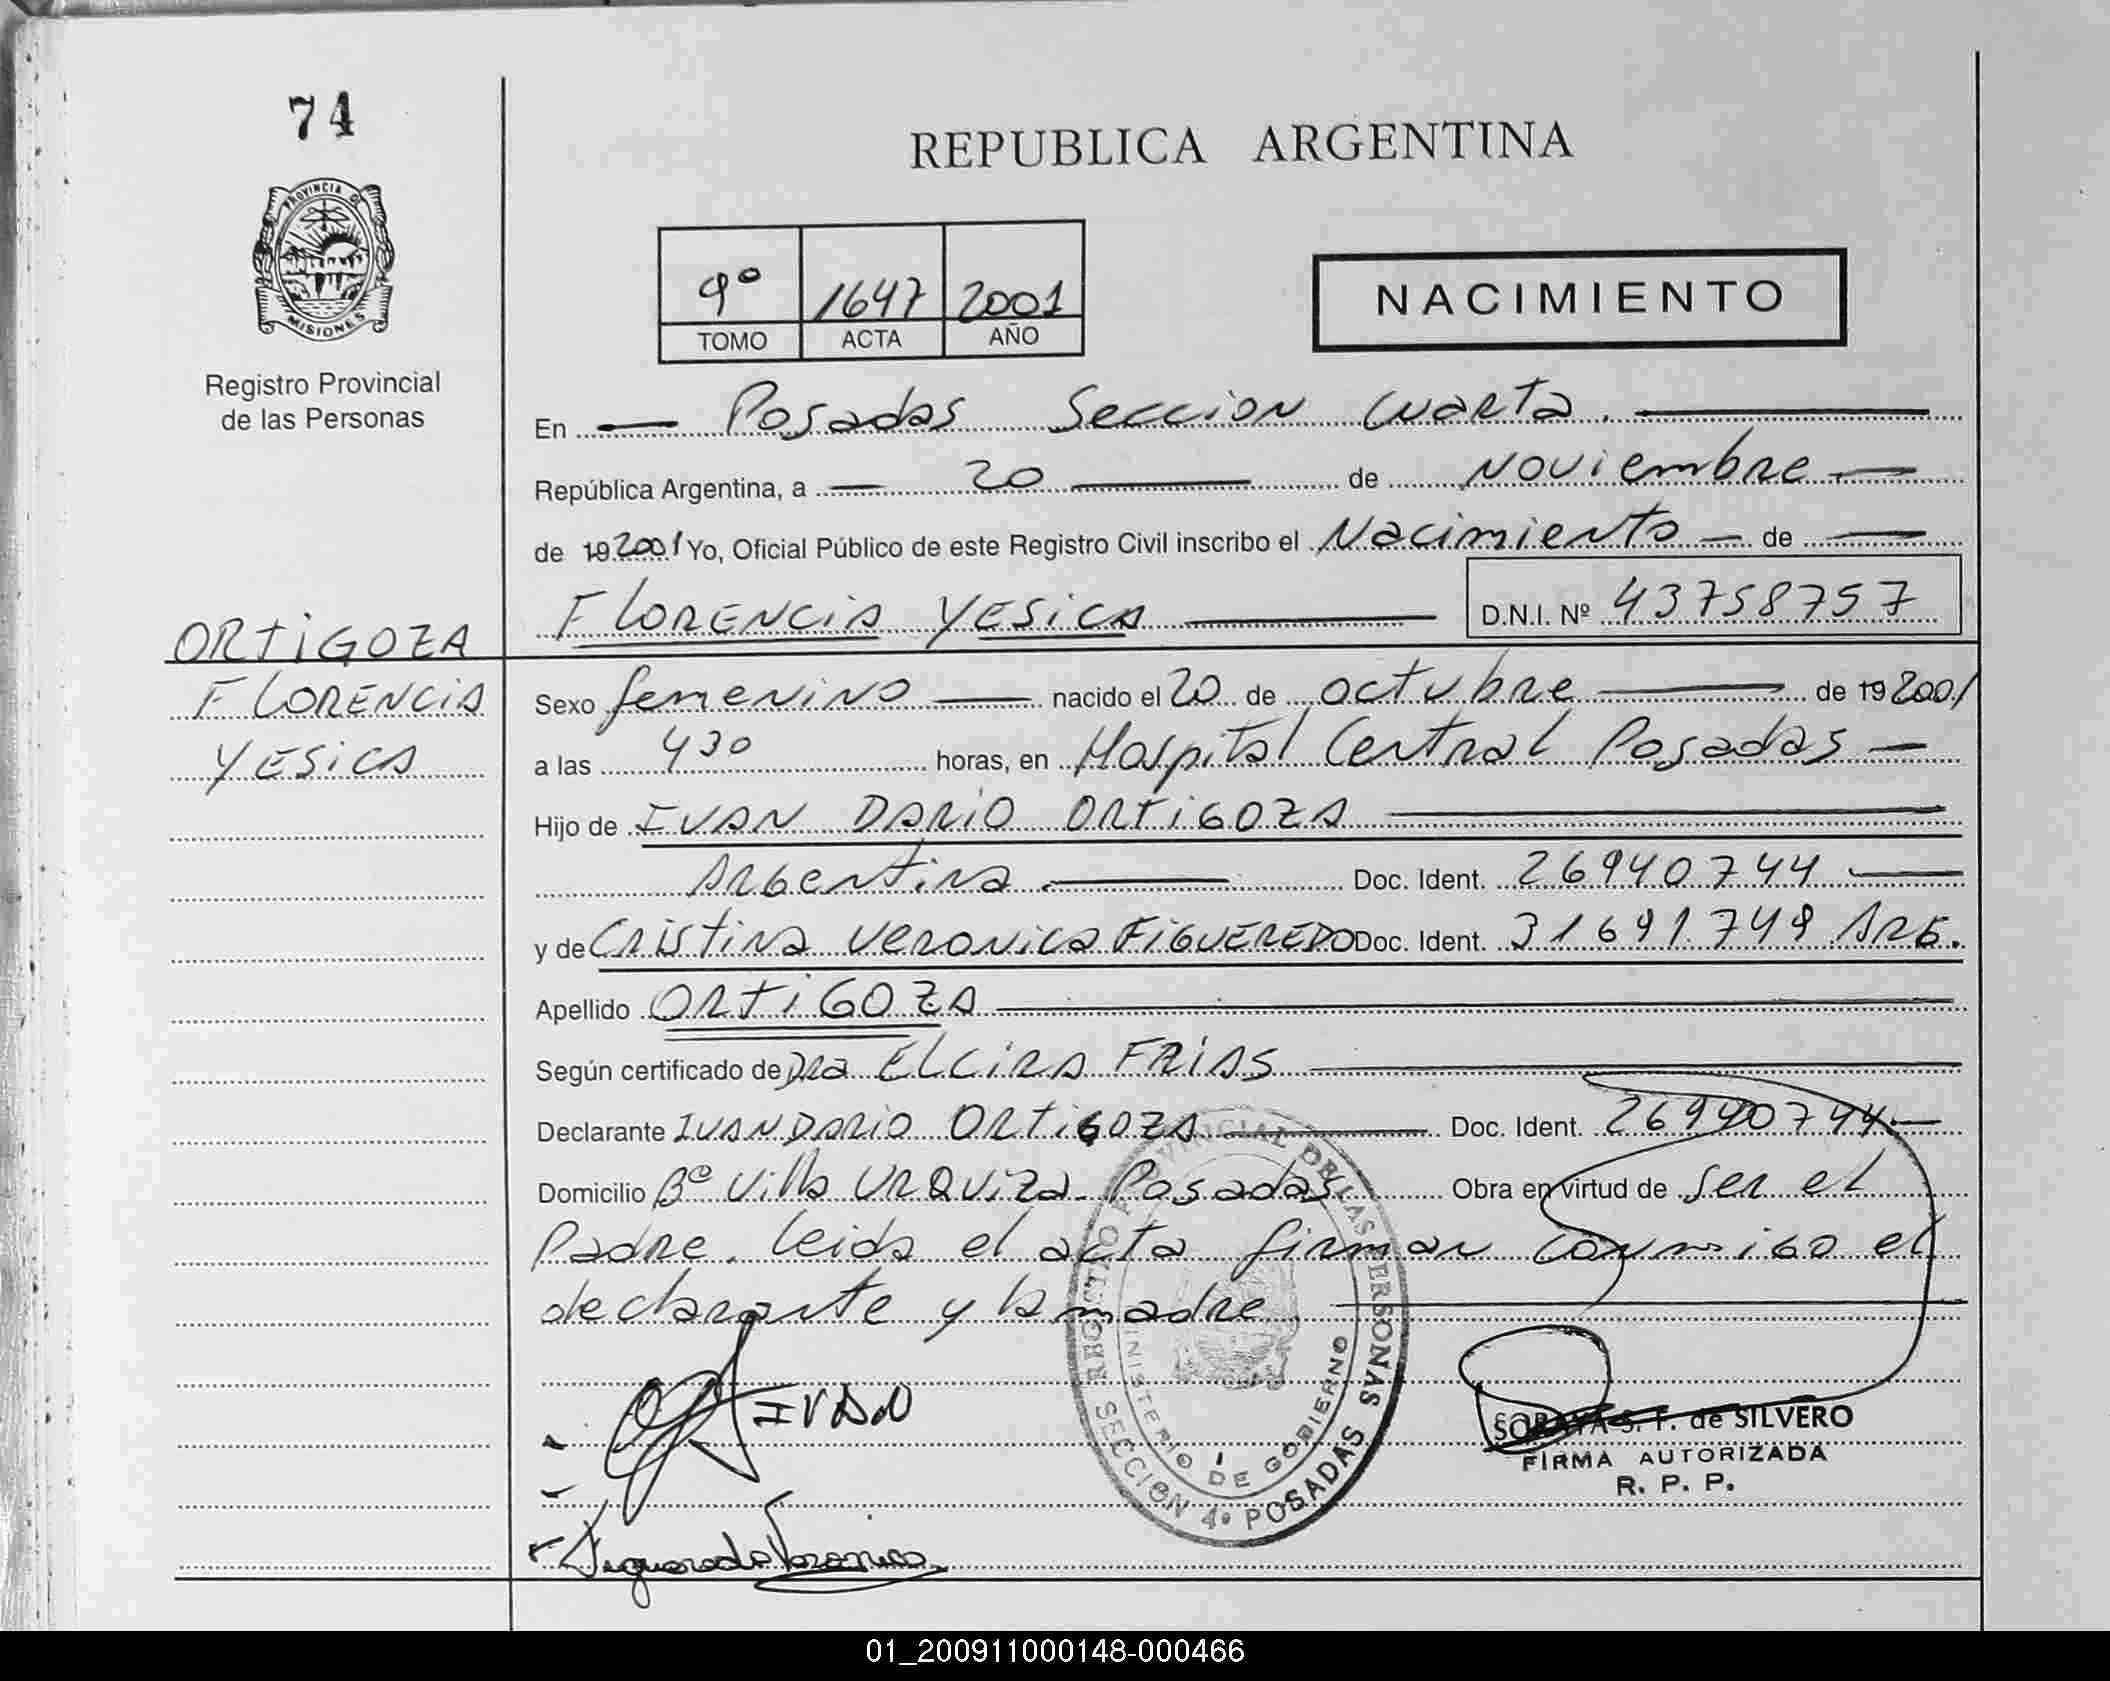 74
PROVINCIA DE
MISIONES
Registro Provincial
de las Personas
ORTIGOZA
FLORENCIA
YESICA
REPUBLICA ARGENTINA
9º 1647 2001
TOMO ACTA AÑO
NACIMIENTO
En Posadas Seccion Cuarta.
República Argentina, a 20 de Noviembre
de 19 2001 Yo, Oficial Público de este Registro Civil inscribo el Nacimiento de
FLORENCIA YESICA D.N.I. Nº 43758757
Sexo femenino nacido el 20 de octubre de 19 2001
a las 430 horas, en Hospital Central Posadas
Hijo de IVAN DARIO ORTIGOZA
Argentina Doc. Ident. 26940744
y de Cristina Veronica FIGUEREDO Doc. Ident. 31691749 ARG.
Apellido ORTIGOZA
Según certificado de Dra ELCIRA FRIAS
Declarante IVAN DARIO ORTIGOZA Doc. Ident. 26940744
Domicilio Bº Villa URQUIZA - Posadas Obra en virtud de ser el
Padre. leida el acta firman conmigo el
declarante y la madre.
IVAN
REGISTRO PROVINCIAL DE LAS PERSONAS
MINISTERIO DE GOBIERNO
SECCION 4º POSADAS
SORAYA S. F. de SILVERO
FIRMA AUTORIZADA
R. P. P.
Figueredo Veronica
01_200911000148-000466